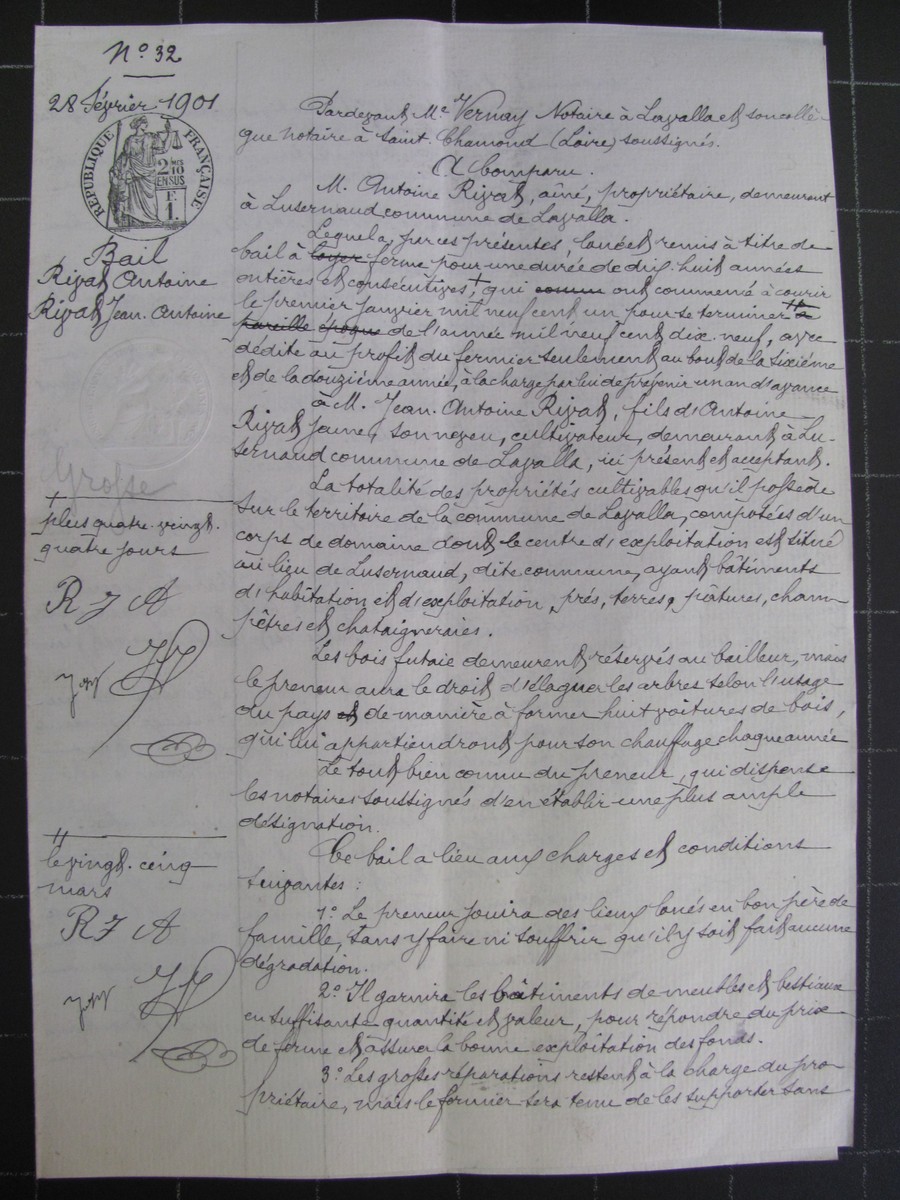 N° 32
28 février 1901
RÉPUBLIQUE FRANÇAISE
2/10
EN SUS
F.
1.
Bail
Rivat Antoine
Rivat Jean-Antoine
Grosse
+
plus quatre-vingt-
quatre jours
R J A
++
le vingt-cinq
mars
R J A
Pardevant Me Vernay Notaire à Lavalla et son collè-
gue notaire à Saint-Chamond (Loire) soussignés.
A Comparu.
M. Antoine Rivat, aîné, propriétaire, demeurant
à Lusernaud commune de Lavalla.
Lequel a, par ces présentes, loué et remis à titre de
bail à loyer ferme pour une durée de dix-huit années
entières et consécutives, + qui ont commencé à courir
le premier janvier mil neuf cent un pour se terminer ++ à
pareille époque de l'année mil neuf cent dix-neuf, avec
dédite au profit du fermier seulement au bout de la sixième
et de la douzième année, à la charge par lui de prévenir un an d'avance
à M. Jean-Antoine Rivat, fils d'Antoine
Rivat jeune, son neveu, cultivateur, demeurant à Lu-
sernaud commune de Lavalla, ici présent et acceptant.
La totalité des propriétés cultivables qu'il possède
sur le territoire de la commune de Lavalla, composées d'un
corps de domaine dont le centre d'exploitation est situé
au lieu de Lusernaud, dite commune, ayant bâtiments
d'habitation et d'exploitation, prés, terres, pâtures, cham-
pêtres et chataigneraies.
Les bois futaie demeurent réservés au bailleur, mais
le preneur aura le droit d'élaguer les arbres selon l'usage
du pays et de manière à former huit voitures de bois,
qui lui appartiendront pour son chauffage chaque année
Le tout bien connu du preneur, qui dispense
les notaires soussignés d'en établir une plus ample
désignation.
Ce bail a lieu aux charges et conditions
suivantes :
1° Le preneur jouira des lieux loués en bon père de
famille, sans y faire ni souffrir qu'il y soit fait aucune
dégradation.
2° Il garnira les bâtiments de meubles et bestiaux
en suffisante quantité et valeur, pour répondre du prix
de ferme et assurer la bonne exploitation des fonds.
3° Les grosses réparations restent à la charge du pro-
priétaire, mais le fermier sera tenu de les supporter sans